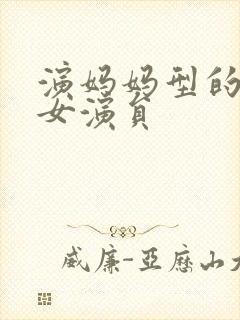 演妈妈型的
女演员
威廉-亞歷山大